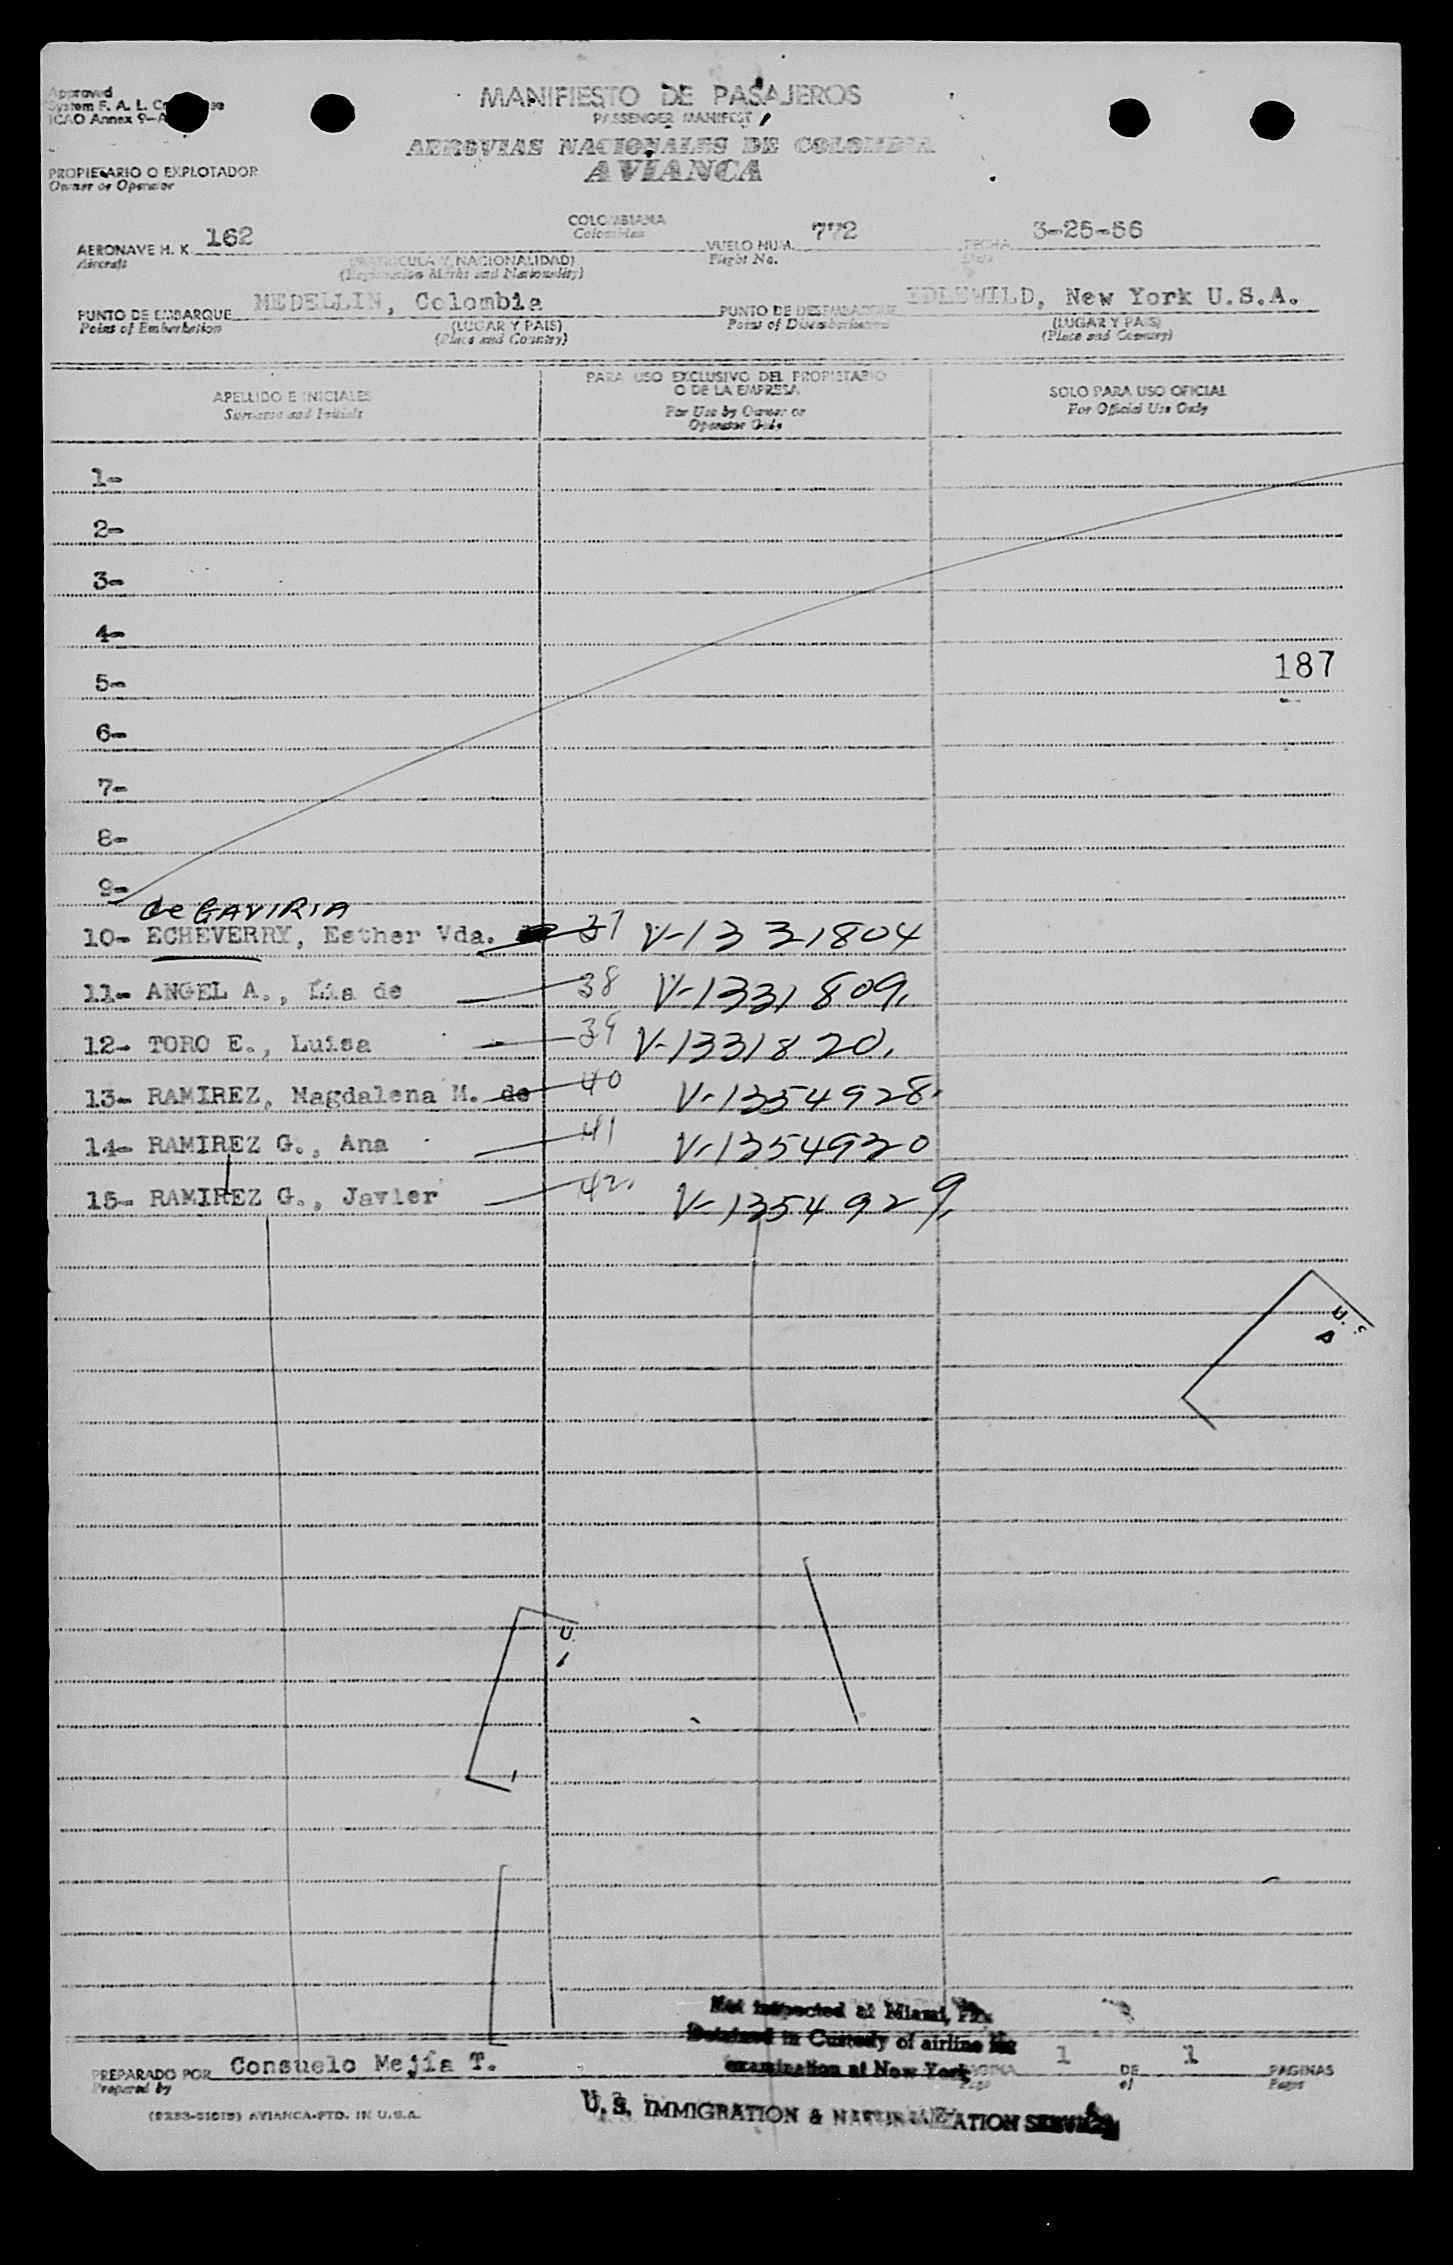 Approved
System F. A. L.
ICAO Annex 9-A
MANIFIESTO DE PASAJEROS
PASSENGER MANIFEST
AEROVIAS NACIONALES DE COLOMBIA
AVIANCA
PROPIETARIO O EXPLOTADOR
Owner or Operator
AERONAVE H. K. 162 COLOMBIANA VUELO NUM. 772 FECHA 3-25-56
Aircraft Colombian Flight No. Date
(MATRICULA Y NACIONALIDAD)
(Registration Marks and Nationality)
PUNTO DE EMBARQUE MEDELLIN, Colombia PUNTO DE DESEMBARQUE IDLEWILD, New York U.S.A.
Point of Embarkation (LUGAR Y PAIS) Point of Disembarkation (LUGAR Y PAIS)
(Place and Country) (Place and Country)
APELLIDO E INICIALES PARA USO EXCLUSIVO DEL PROPIETARIO SOLO PARA USO OFICIAL
Surname and Initials O DE LA EMPRESA For Official Use Only
For Use by Owner or
Operator Only
1-
2-
3-
4-
187
5-
6-
7-
8-
9-
de GAVIRIA
10- ECHEVERRY, Esther Vda. 37 V-1331804
11- ANGEL A., Lia de 38 V-1331809.
12- TORO E., Luisa 39 V-1331820.
13- RAMIREZ, Magdalena M. de 40 V-1354928.
14- RAMIREZ G., Ana 41 V-1354920
15- RAMIREZ G., Javier 42. V-1354929.
U. S.
A
U.
Not inspected at Miami, Fla.
Detained in Custody of airline for
examination at New York
PREPARADO POR Consuelo Mejía T. PAGINA 1 DE 1 PAGINAS
Prepared by Page of Pages
AVIANCA-PTD. IN U.S.A.
U. S. IMMIGRATION & NATURALIZATION SERVICE